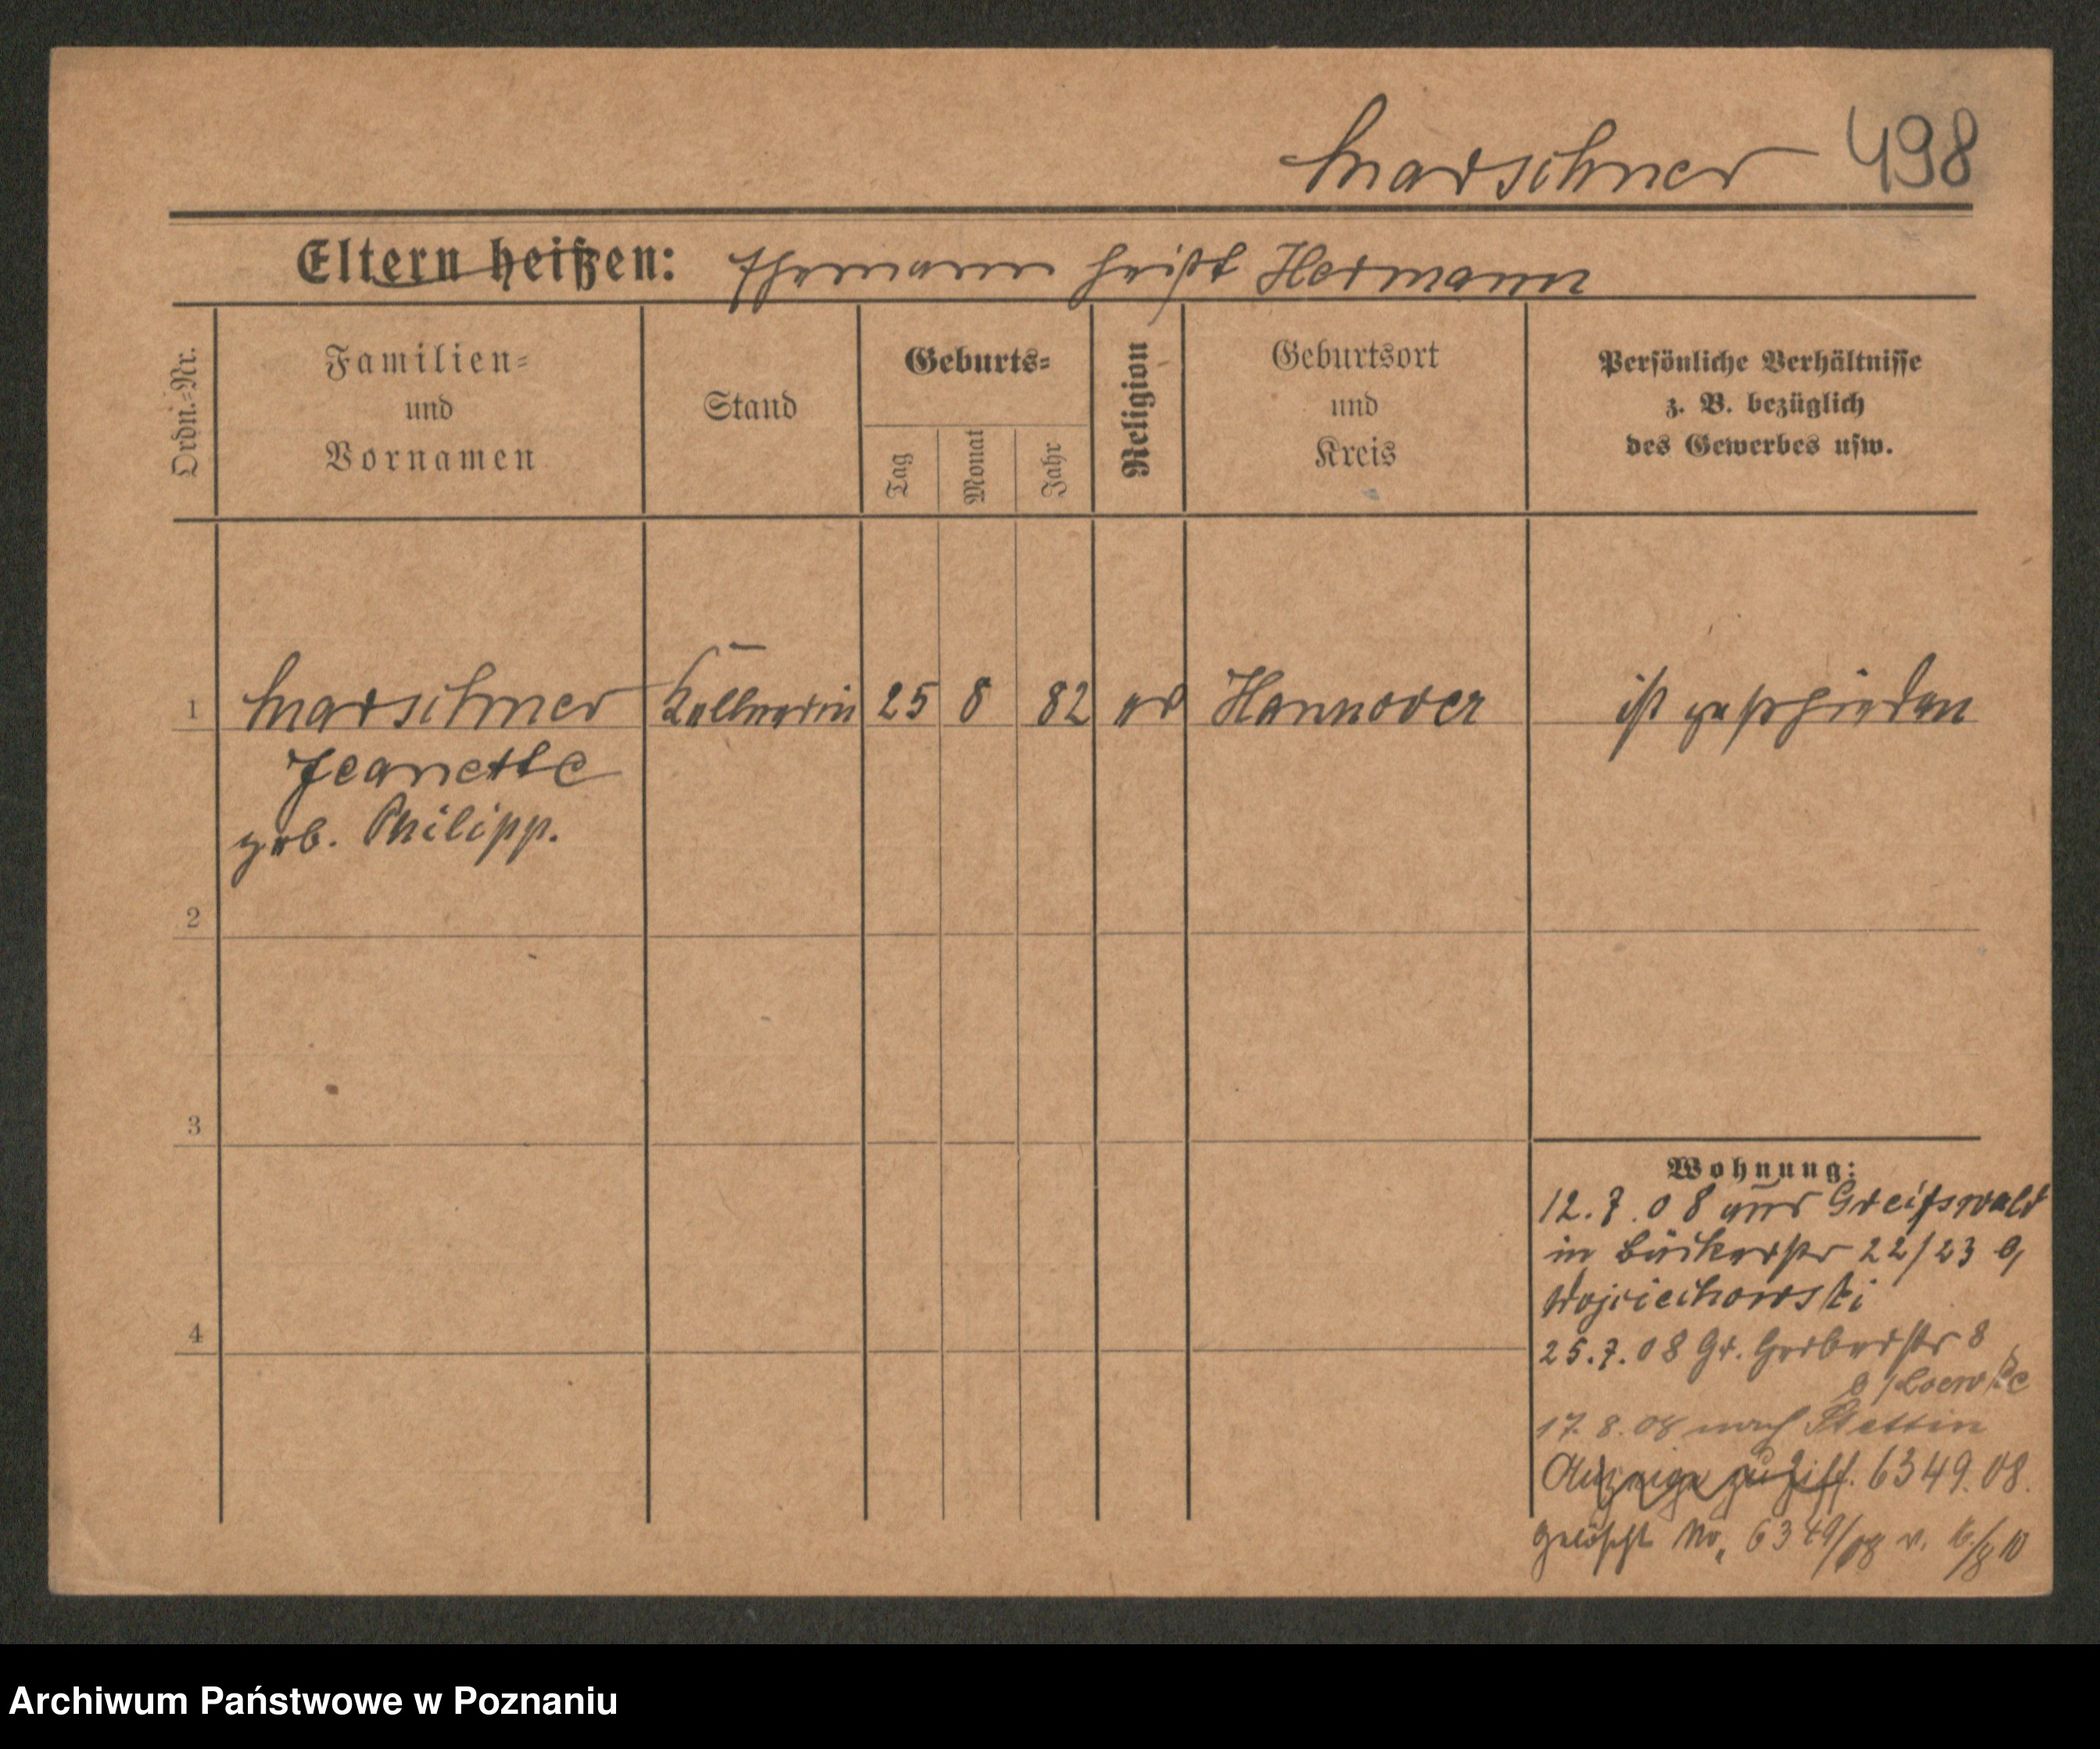 Marschner 498
Eltern heißen: Ehemann heißt Hermann
Ordn.-Nr.
Familien-
und
Vornamen
Stand
Geburts-
Tag
Monat
Jahr
Religion
Geburtsort
und
Kreis
Persönliche Verhältnisse
z. B. bezüglich
des Gewerbes usw.
1 Marschner Kellnerin 25 8 82 ev Hannover ist geschieden
Jeanette
geb. Philipp.
2
3
4
Wohnung:
12.7.08 aus Greifswald
in Bäckerstr 22/23 b/
Wojciechowski
25.7.08 Gr. Gerberstr 8
b/Loewke
17.8.08 nach Stettin
6349.08.
gelöscht No. 6349/08 v.
Archiwum Państwowe w Poznaniu